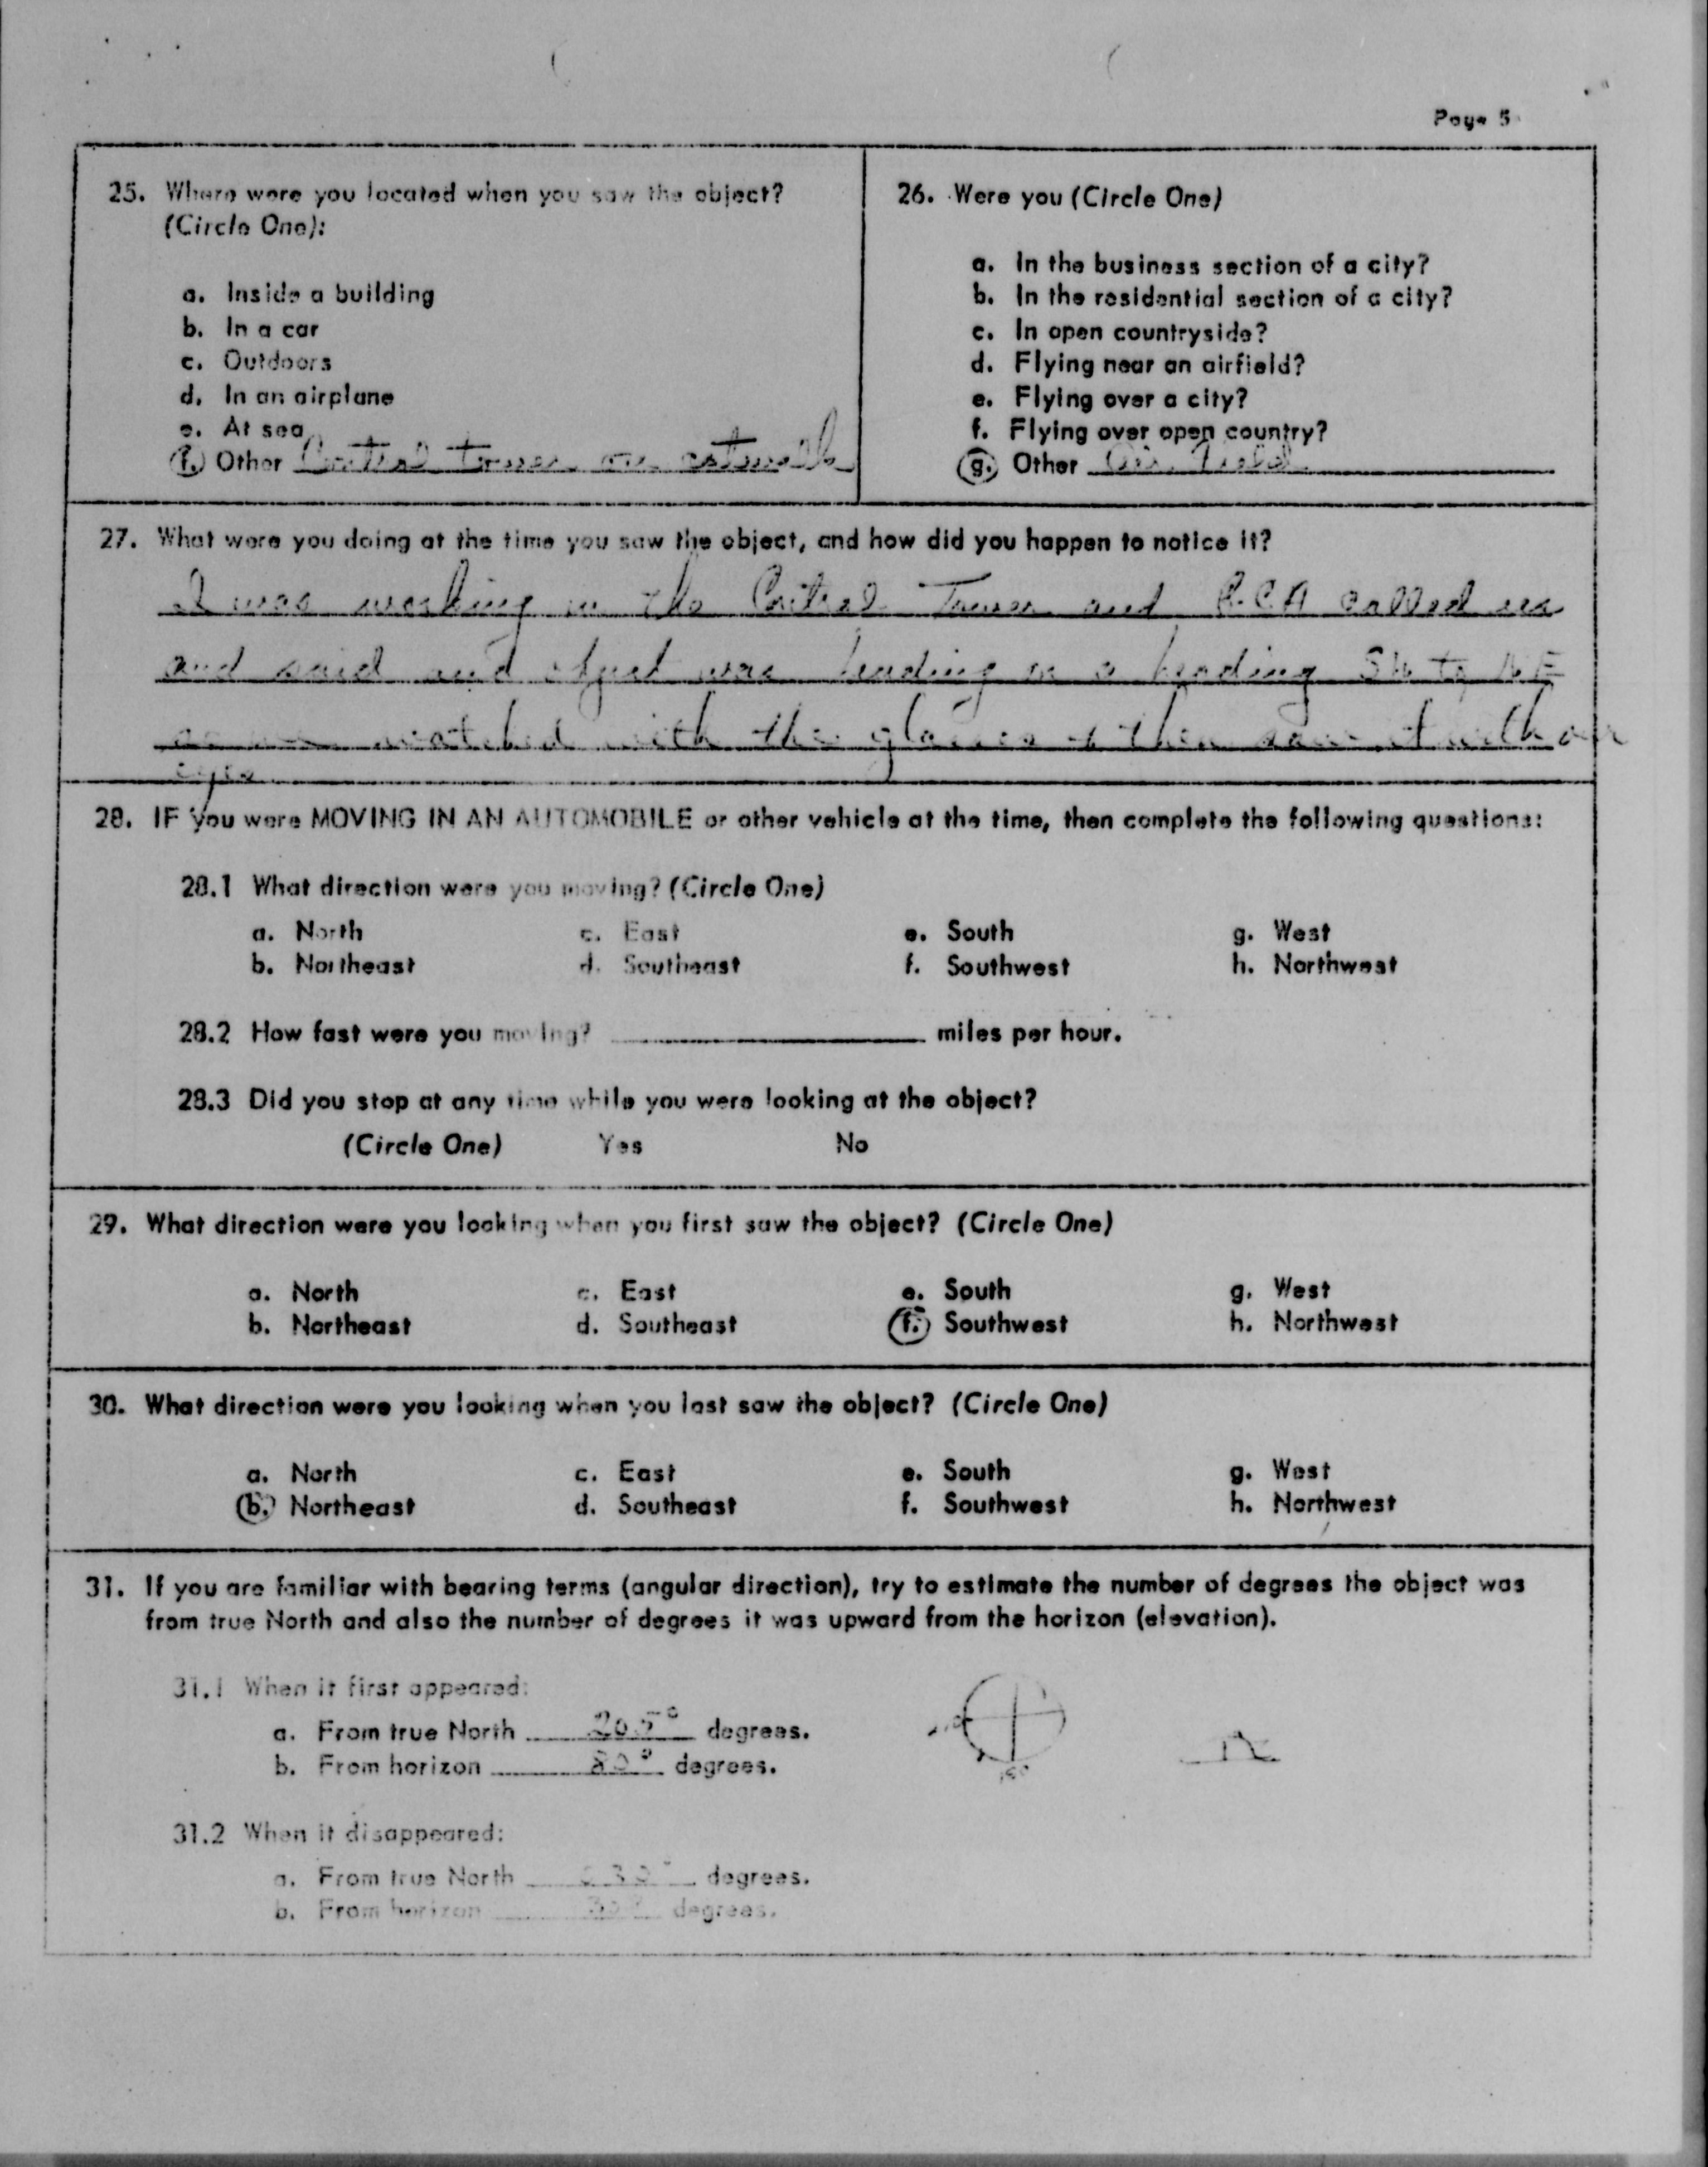 Page 5
25. Where were you located when you saw the object?
(Circle One):
a. Inside a building
b. In a car
c. Outdoors
d. In an airplane
e. At sea
f. Other Control tower on catwalk
26. Were you (Circle One)
a. In the business section of a city?
b. In the residential section of a city?
c. In open countryside?
d. Flying near an airfield?
e. Flying over a city?
f. Flying over open country?
g. Other Air Field
27. What were you doing at the time you saw the object, and how did you happen to notice it?
I was working in the Control Tower and called us
and said and was heading on a heading SW to NE
watched with the glasses & then saw it with our
eyes
28. IF you were MOVING IN AN AUTOMOBILE or other vehicle at the time, then complete the following questions:
28.1 What direction were you moving? (Circle One)
a. North c. East e. South g. West
b. Northeast d. Southeast f. Southwest h. Northwest
28.2 How fast were you moving? miles per hour.
28.3 Did you stop at any time while you were looking at the object?
(Circle One) Yes No
29. What direction were you looking when you first saw the object? (Circle One)
a. North c. East e. South g. West
b. Northeast d. Southeast f. Southwest h. Northwest
30. What direction were you looking when you last saw the object? (Circle One)
a. North c. East e. South g. West
b. Northeast d. Southeast f. Southwest h. Northwest
31. If you are familiar with bearing terms (angular direction), try to estimate the number of degrees the object was
from true North and also the number of degrees it was upward from the horizon (elevation).
31.1 When it first appeared:
a. From true North 205° degrees.
b. From horizon 80° degrees.
31.2 When it disappeared:
a. From true North degrees.
b. From horizon degrees.